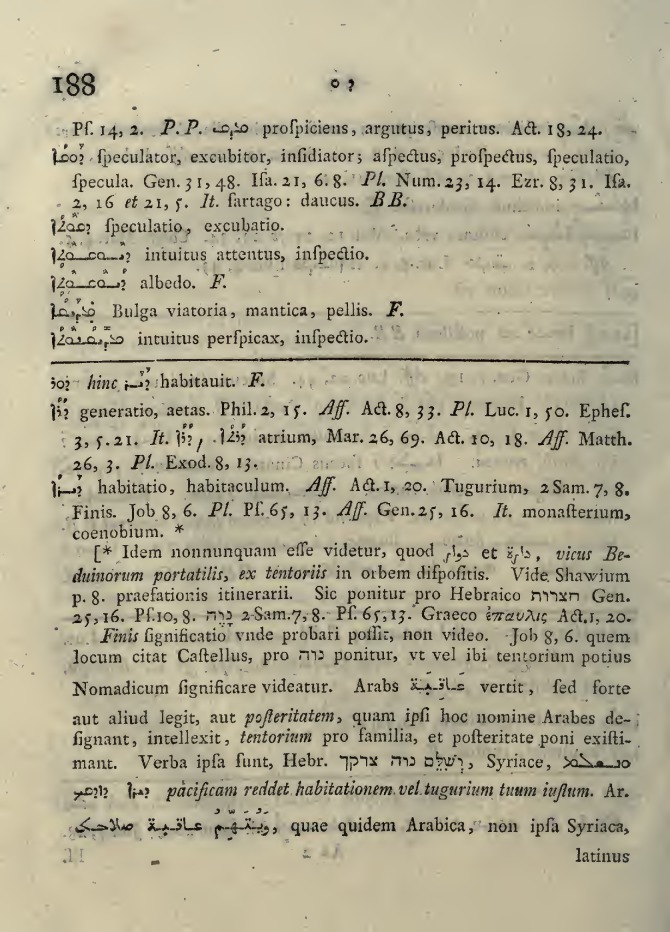 188 ܘ ܕ
Pſ. 14, 2. P. P. ܡܕܝܩ proſpiciens, argutus, peritus. Act. 18, 24.
ܕܘܩܐ ſpeculator, excubitor, inſidiator; aſpectus, proſpectus, ſpeculatio,
ſpecula. Gen. 31, 48. Iſa. 21, 6. 8. Pl. Num. 23, 14. Ezr. 8, 31. Iſa.
2, 16 et 21, 5. It. fartago: daucus. BB.
ſpeculatio, excubatio.
intuitus attentus, inſpectio.
albedo. F.
Bulga viatoria, mantica, pellis. F.
intuitus perſpicax, inſpectio.
ܕܘܪ hinc ܕܝܪ habitauit. F.
ܕܪܐ generatio, aetas. Phil. 2, 15. Aff. Act. 8, 33. Pl. Luc. 1, 50. Epheſ.
3, 5. 21. It. ܕܪܐ, ܕܪܬܐ atrium, Mar. 26, 69. Act. 10, 18. Aff. Matth.
26, 3. Pl. Exod. 8, 13.
ܕܝܪܐ habitatio, habitaculum. Aff. Act. 1, 20. Tugurium, 2 Sam. 7, 8.
Finis. Job 8, 6. Pl. Pſ. 65, 13. Aff. Gen. 25, 16. It. monaſterium,
coenobium. *
[* Idem nonnunquam eſſe videtur, quod دوار et, vicus Be-
duinorum portatilis, ex tentoriis in orbem diſpoſitis. Vide Shawium
p. 8. praefationis itinerarii. Sic ponitur pro Hebraico חצרות Gen.
25, 16. Pſ. 10, 8. נוה 2 Sam. 7, 8. Pſ. 65, 13. Graeco ἐπαυλις Act. 1, 20.
Finis ſignificatio vnde probari poſſit, non video. Job 8, 6. quem
locum citat Caſtellus, pro נוה ponitur, vt vel ibi tentorium potius
Nomadicum ſignificare videatur. Arabs عاقبة vertit, ſed forte
aut aliud legit, aut poſteritatem, quam ipſi hoc nomine Arabes de-
ſignant, intellexit, tentorium pro familia, et poſteritate poni exiſti-
mant. Verba ipſa ſunt, Hebr. ושלם נוה צדקך, Syriace,
pacificam reddet habitationem vel tugurium tuum iuſtum. Ar.
عاقبة صلاحك, quae quidem Arabica, non ipſa Syriaca,
latinus